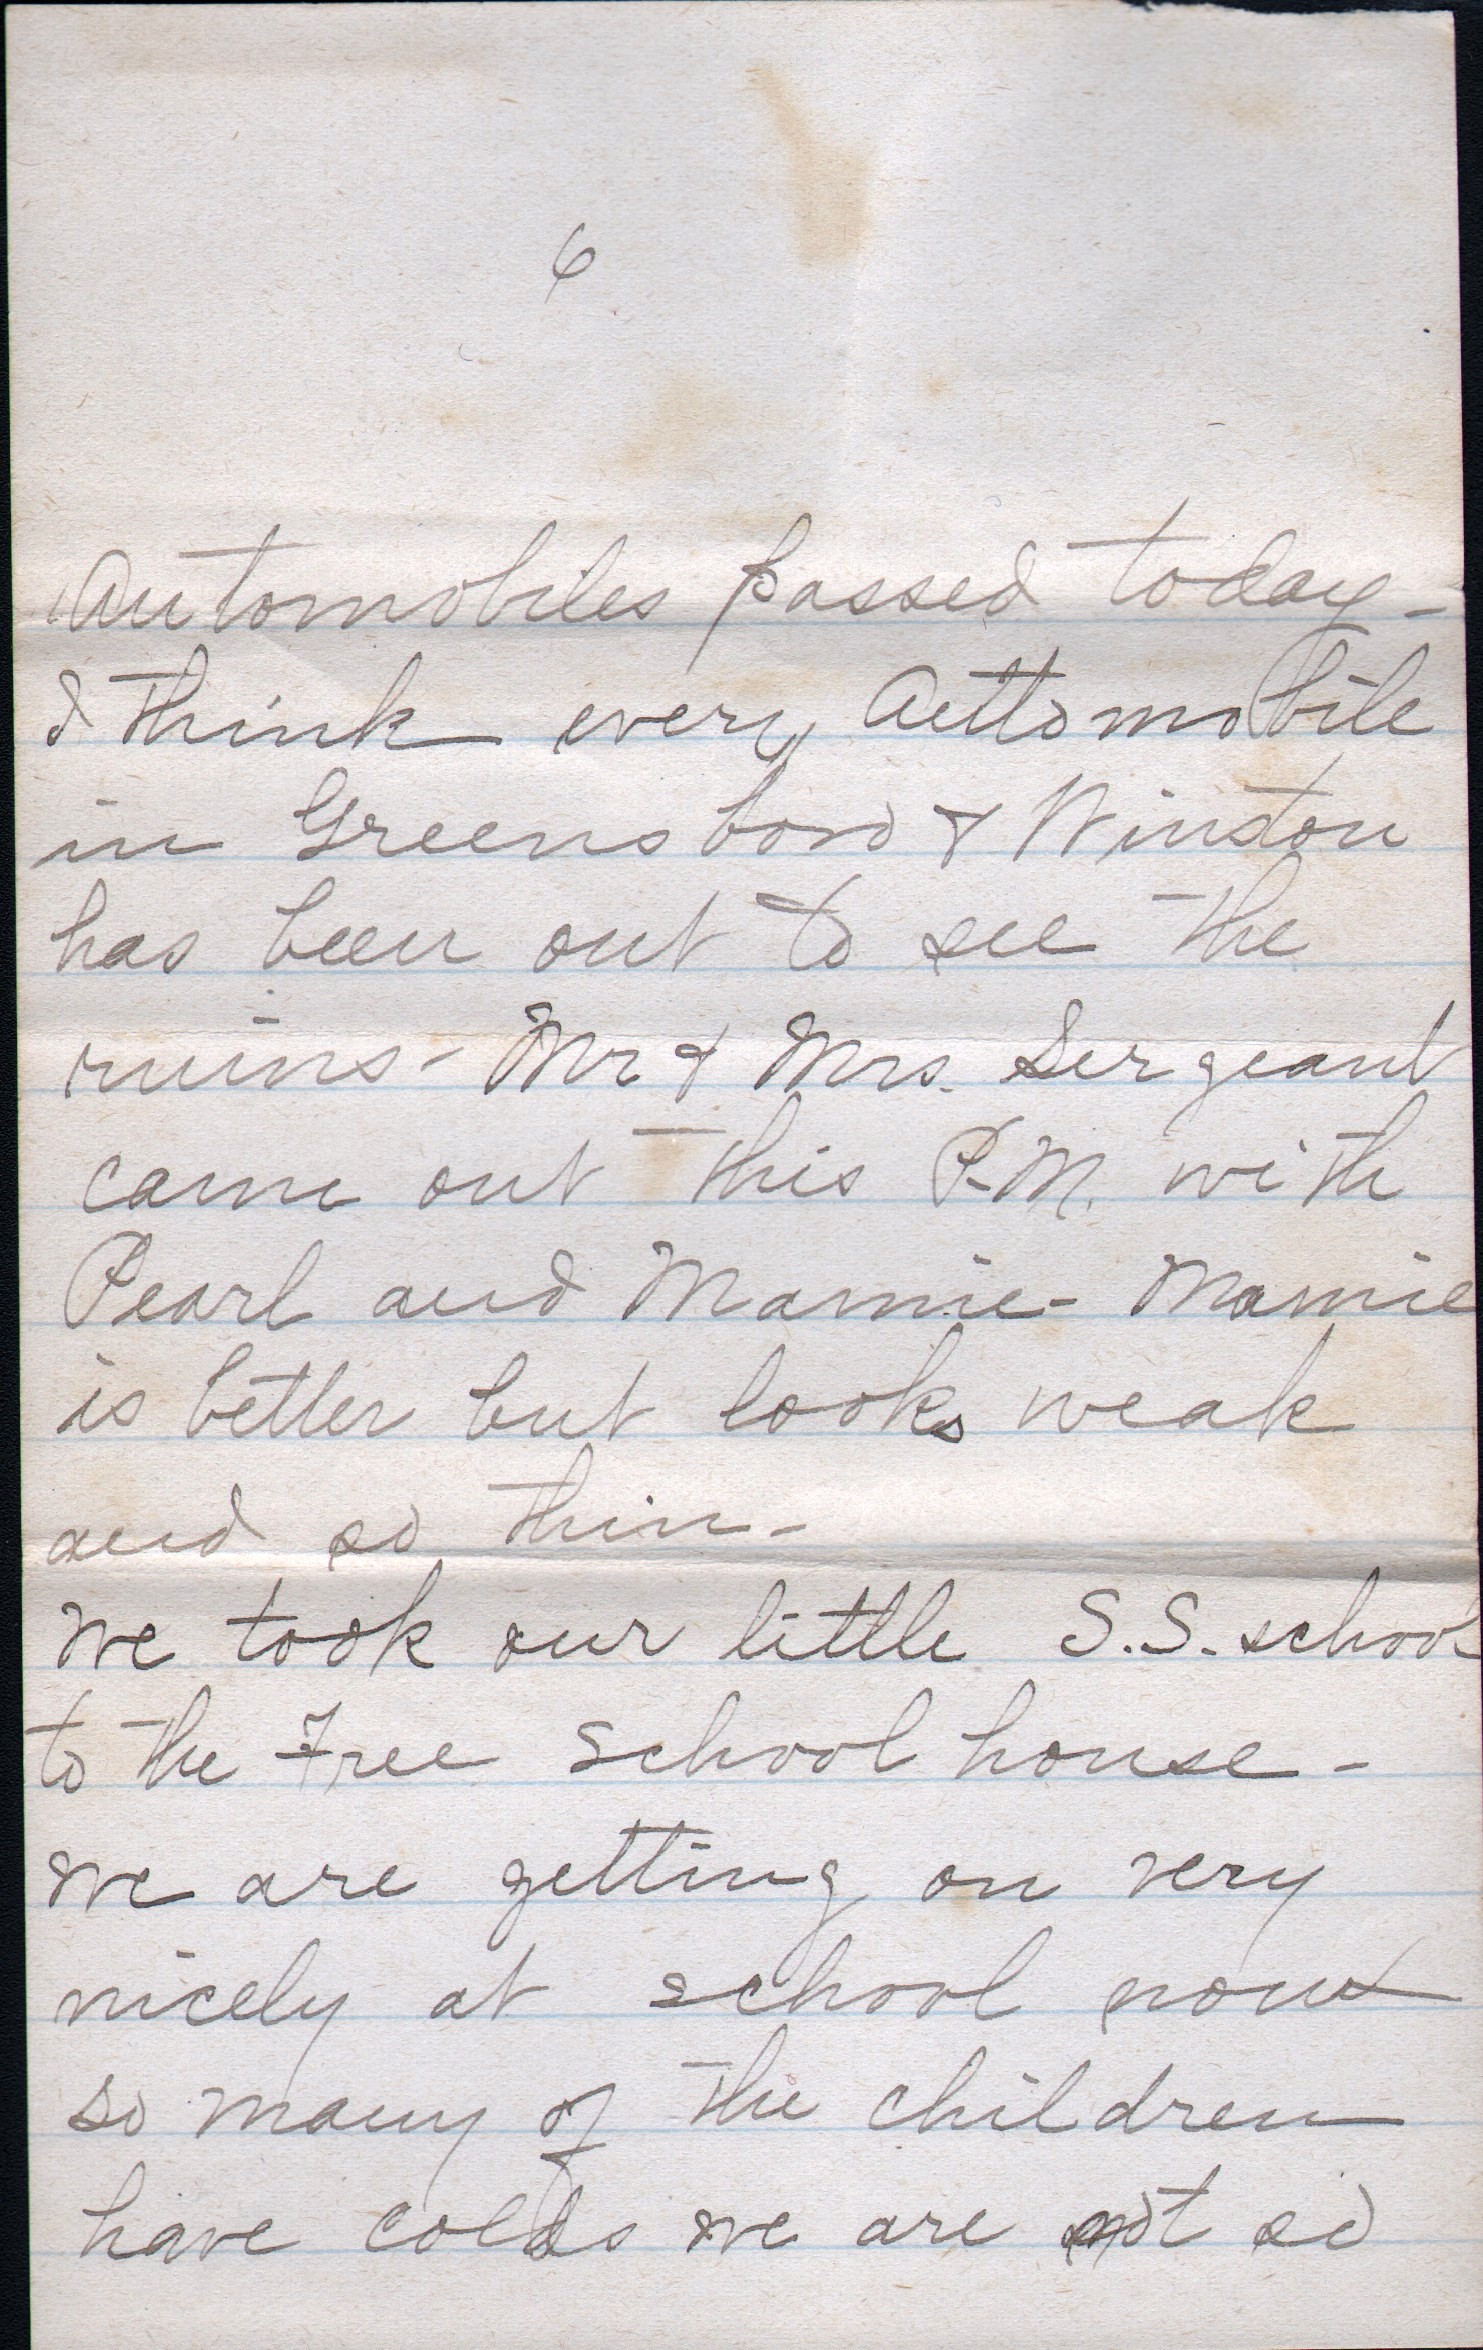 6
Automobiles passed today -
I think every Automobile
in Greensboro & Winston
has been out to see the
ruins - Mr & Mrs. Sergeant
came out this P.M. with
Pearl and Mamie - Mamie
is better but looks weak
and so thin -
We took our little S.S. school
to the Free School house -
We are getting on very
nicely at school now
so many of the children
have colds we are not so